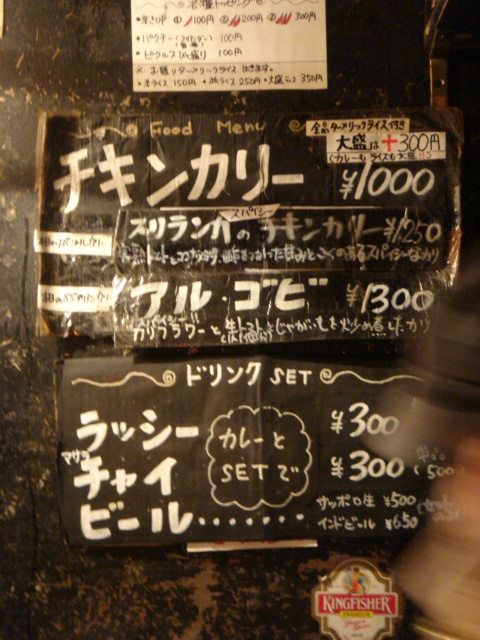 各種トッピング
・辛さUP ① 100円 ② 200円 ③ 300円
・パクチー(コリアンダー) 100円
・ピクルスひと盛り 100円
※お替りターメリックライス出来ます。
・半ライス 150円 ・ライス 250円 ・大盛ライス 350円
Food Menu
全品ターメリックライス付き
大盛は+300円
(カレーもライスも大盛
チキンカリー ¥1000
スパイシー
スリランカのチキンカリー ¥1250
アル・ゴビ ¥1300
カリフラワーと生トマトとじゃがいもを炒め煮したカリー
ドリンク SET
ラッシー ¥300
マサラ
チャイ ¥300
(500
カレーと
SETで
ビール・・・・・・
サッポロ生 ¥500
インドビール ¥650
KINGFISHER
PREMIUM